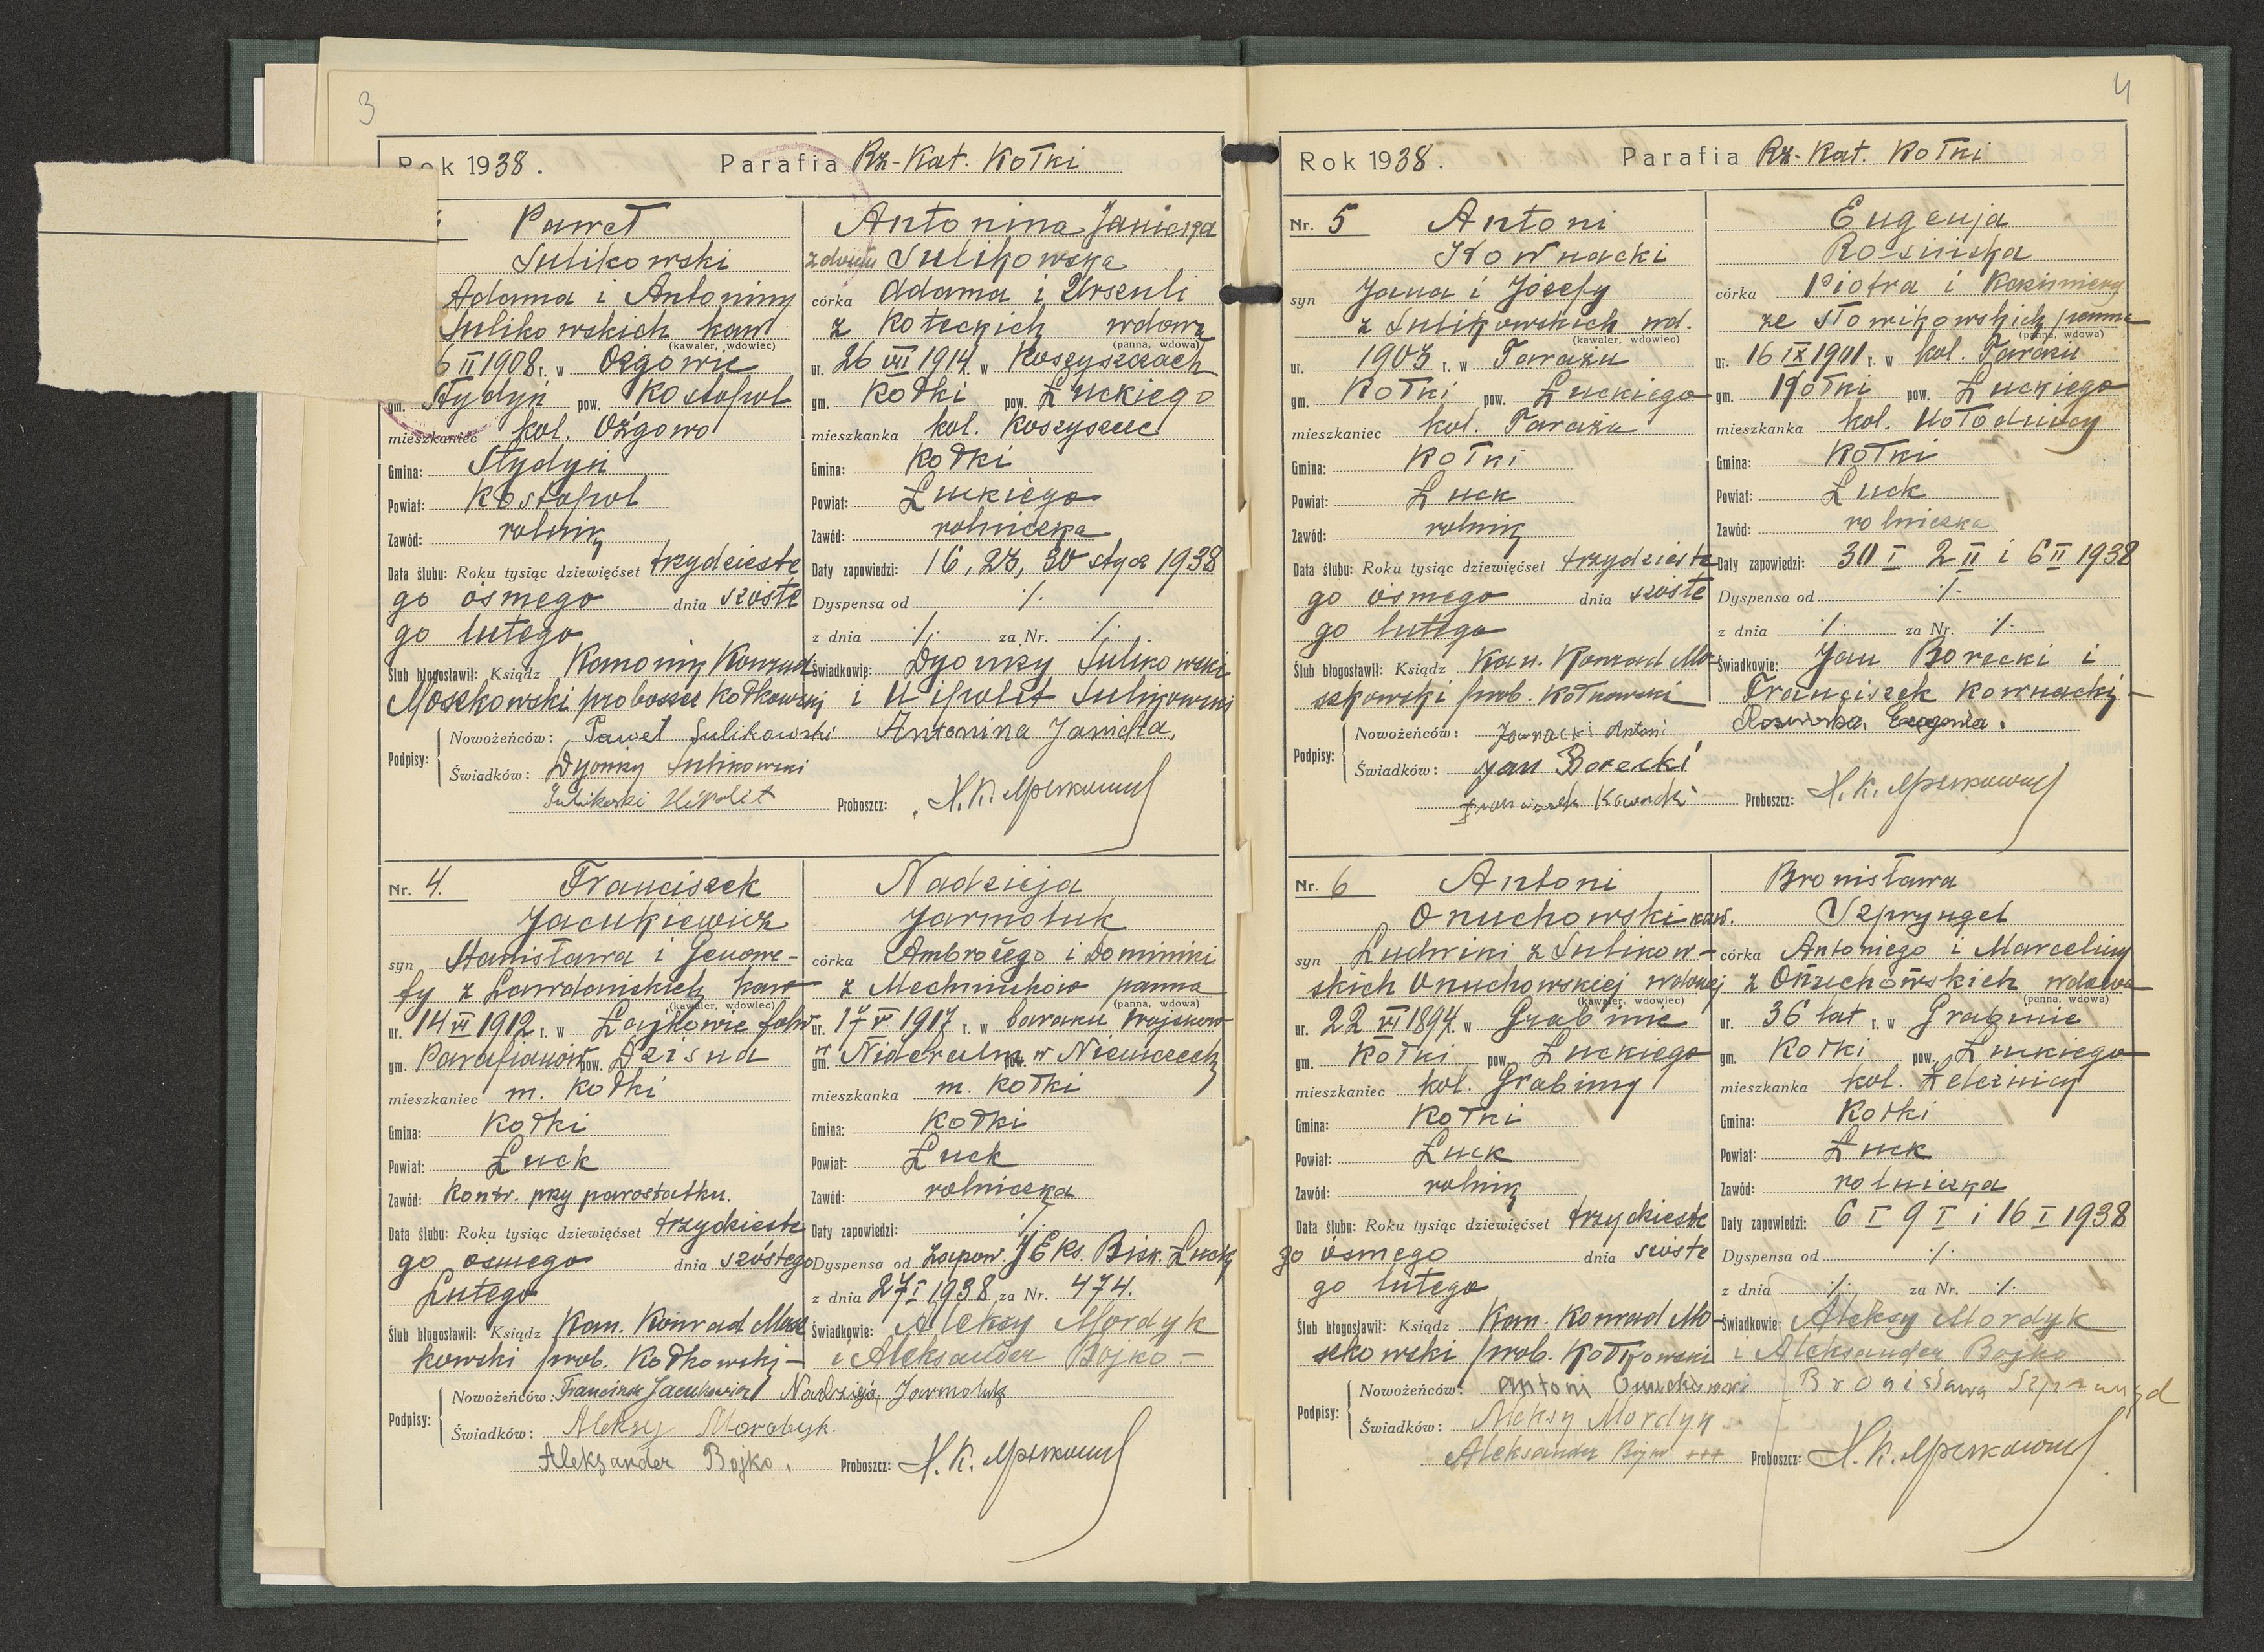 3
Rok 1938. Parafia Rz-Kat. Kołki
Paweł
Sulikowski
Adama i Antoniny
Sulikowskich kaw
(kawaler, wdowiec)
6 II 1908 r. w Ożgowie
gm. Stydyń pow. Kostopol
mieszkaniec kol. Ożgowo
Gmina: Stydyń
Powiat: Kostopol
Zawód: rolnik
Data ślubu: Roku tysiąc dziewięćset trzydzieste
go ósmego dnia szóste
go lutego
Ślub błogosławił: Ksiądz Kanonik Konrad
Moszkowski proboszcz Kołkowski
Antonina Janicka
z domu Sulikowska
córka Adama i Urszuli
z Koteckich wdowa
(panna, wdowa)
ur. 26 VII 1914 w Koszyszczach
gm. Kołki pow. Łuckiego
mieszkanka kol. Koszyszcze
Gmina: Kołki
Powiat: Łuckiego
Zawód: rolniczka
Daty zapowiedzi: 16, 23, 30 stycz 1938
Dyspensa od ·/·
z dnia ·/· za Nr. ·/·
Świadkowie: Dyonizy Sulikowski
i Hipolit Sulikowski
Podpisy: Nowożeńców: Paweł Sulikowski Antonina Janicka,
Świadków: Dyonizy Sulikowski
Sulikoski Hipolit Proboszcz:
Nr. 4. Franciszek
Jacukiewicz
syn Stanisława i Genowe-
fy z Lawdańskich kaw
(kawaler, wdowiec)
ur. 14 VI 1912 r. w Łajkowie folw
gm. Parafianów pow. Dzisna
mieszkaniec m. Kołki
Gmina: Kołki
Powiat: Łuck
Zawód: Kontr. przy parostatku.
Data ślubu: Roku tysiąc dziewięćset trzydzieste
go ósmego dnia szóstego
Lutego
Ślub błogosławił: Ksiądz Kan. Konrad Mosz
kowski prob. Kołkowski —
Nadzieja
Jarmoluk
córka Ambrożego i Dominiki
z Mechniuków panna
(panna, wdowa)
ur. 17 V 1917 r. w baraku wojskow
gm. w pow. w Niemczech
mieszkanka m. Kołki
Gmina: Kołki
Powiat: Łuck
Zawód: rolniczka
Daty zapowiedzi: ·/·
Dyspensa od zapow. J E Ks. Bisk. Łucki
z dnia 27 I 1938 za Nr. 474.
Świadkowie: Aleksy Mordyk
i Aleksander Bojko —
Podpisy: Nowożeńców: Franciszek Jacukiewicz Nadzieja Jarmoluk
Świadków: Aleksy Mordyk.
Aleksander Bojko. Proboszcz:
4
Rok 1938. Parafia Rz-Kat. Kołki
Nr. 5 Antoni
Kownacki
syn Jana i Józefy
z Sulikowskich wd.
(kawaler, wdowiec)
ur. 1903 r. w Tarażu
gm. Kołki pow. Łuckiego
mieszkaniec kol. Tarażu
Gmina: Kołki
Powiat: Łuck
Zawód: rolnik
Data ślubu: Roku tysiąc dziewięćset trzydzieste
go ósmego dnia szóste
go lutego
Ślub błogosławił: Ksiądz Kan. Konrad Mo-
szkowski prob. Kołkowski
Eugenja
Rosińska
córka Piotra i Kazimiery
ze Słowikowskich panna
(panna, wdowa)
ur. 16 IX 1901 r. w kol. Tarażu
gm. Kołki pow. Łuckiego
mieszkanka kol. Hołodnicy
Gmina: Kołki
Powiat: Łuck
Zawód: rolniczka
Daty zapowiedzi: 30 I 2 II i 6 II 1938
Dyspensa od ·/·
z dnia ·/· za Nr. ·/·
Świadkowie: Jan Borecki i
Franciszek Kownacki —
Podpisy: Nowożeńców: Antoni Rosińska Eugenia.
Świadków: Jan Borecki
Franciszek Proboszcz:
Nr. 6 Antoni
Onuchowski kaw.
syn Ludwiki z Sulikow-
skich Onuchowskiej wdowy
(kawaler, wdowiec)
ur. 22 VI 1894 w Grabinie
gm. Kołki pow. Łuckiego
mieszkaniec kol. Grabiny
Gmina: Kołki
Powiat: Łuck
Zawód: rolnik
Data ślubu: Roku tysiąc dziewięćset trzydzieste
go ósmego dnia szóste
go lutego
Ślub błogosławił: Ksiądz Kan. Konrad Mo-
szkowski prob. Kołkowski
Bronisława
Szpryngel
córka Antoniego i Marceliny
z Onuchowskich wdowa
(panna, wdowa)
ur. 36 lat r. w Grabinie
gm. Kołki pow. Łuckiego
mieszkanka kol. Żeleźnicy
Gmina: Kołki
Powiat: Łuck
Zawód: rolniczka
Daty zapowiedzi: 6 I 9 I i 16 I 1938
Dyspensa od ·/·
z dnia ·/· za Nr. ·/·
Świadkowie: Aleksy Mordyk
i Aleksander Bojko
Podpisy: Nowożeńców: Antoni Onuchowski Bronisława
Świadków: Aleksy Mordyk
Aleksander Bojko +++ Proboszcz: